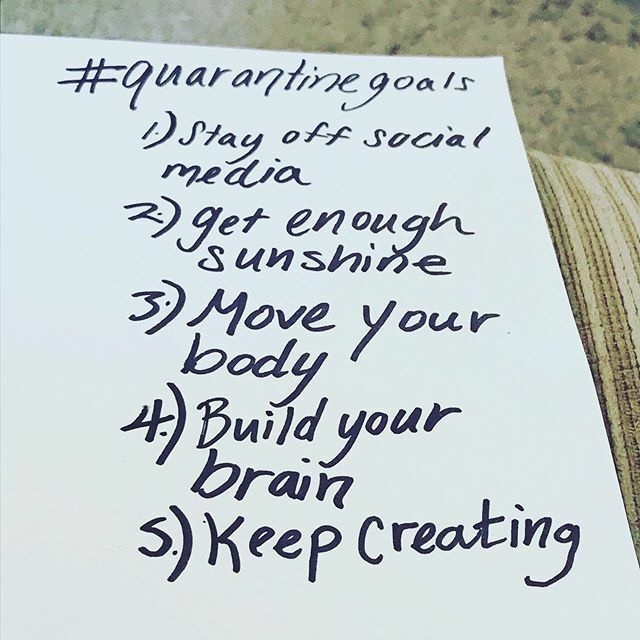 #quarantinegoals
1.) Stay off social
media
2.) get enough
sunshine
3.) Move your
body
4.) Build your
brain
5.) Keep Creating